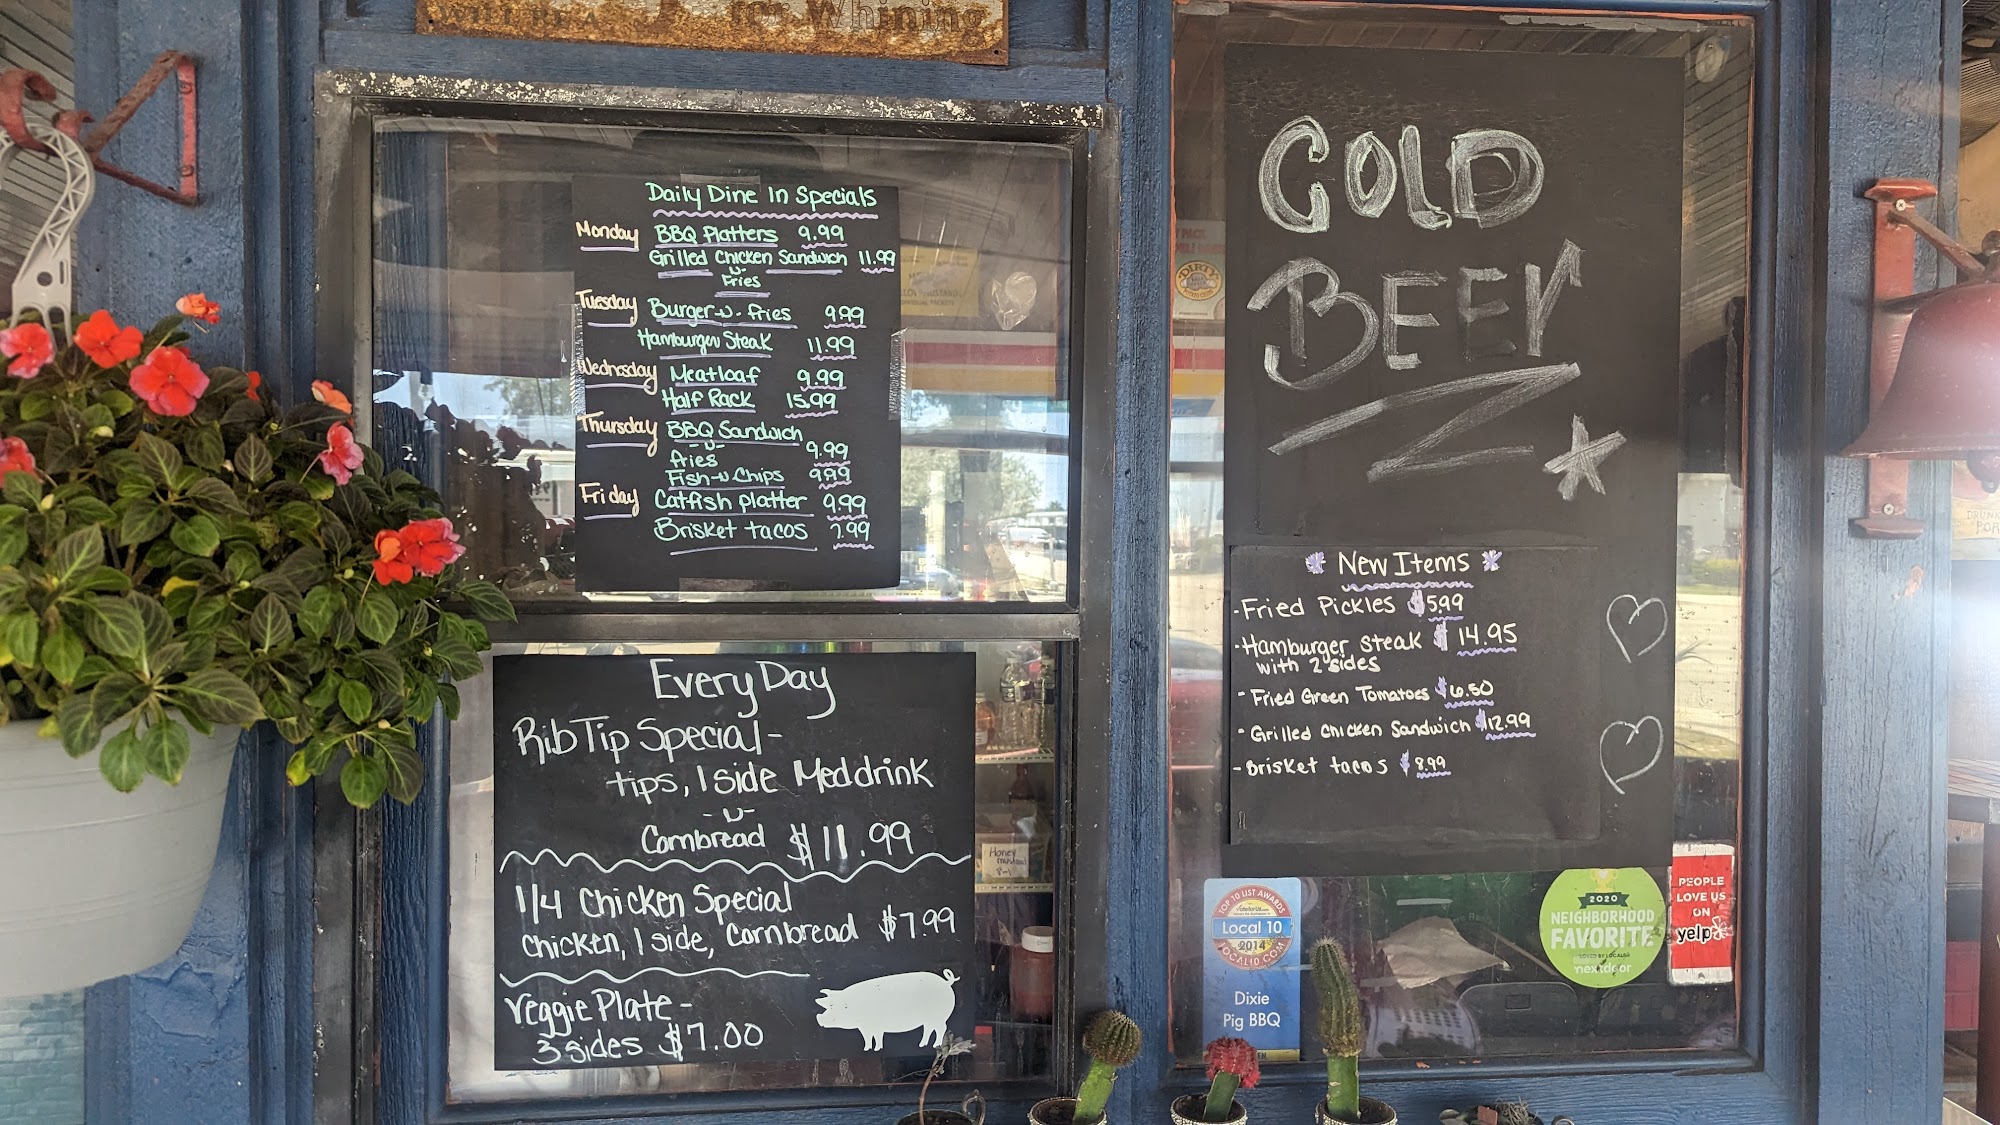 WILL BE A for Whining
Daily Dine In Specials
Monday BBQ Platters 9.99
Grilled Chicken Sandwich 11.99
-w-
Fries
Tuesday Burger -w- fries 9.99
Hamburger Steak 11.99
Wednesday Meatloaf 9.99
Half Rack 15.99
Thursday BBQ Sandwich
-w-
fries 9.99
Fish -n- Chips 9.99
Friday Catfish platter 9.99
Brisket tacos 7.99
Every Day
Rib Tip Special -
tips, 1 side Med drink
-w-
Cornbread $11.99
1/4 Chicken Special
chicken, 1 side, Cornbread $7.99
Veggie Plate -
3 sides $7.00
COLD
BEEr
New Items
- Fried Pickles $5.99
- Hamburger steak $14.95
with 2 sides
- Fried Green Tomatoes $6.50
- Grilled Chicken Sandwich $12.99
- Brisket tacos $8.99
Honey
mustard
8-1
TOP 10 LIST AWARDS
Local 10
2014
LOCAL10.COM
Dixie
Pig BBQ
2020
NEIGHBORHOOD
FAVORITE
LOVED BY LOCALS
nextdoor
PEOPLE
LOVE US
ON
yelp
DIRTY